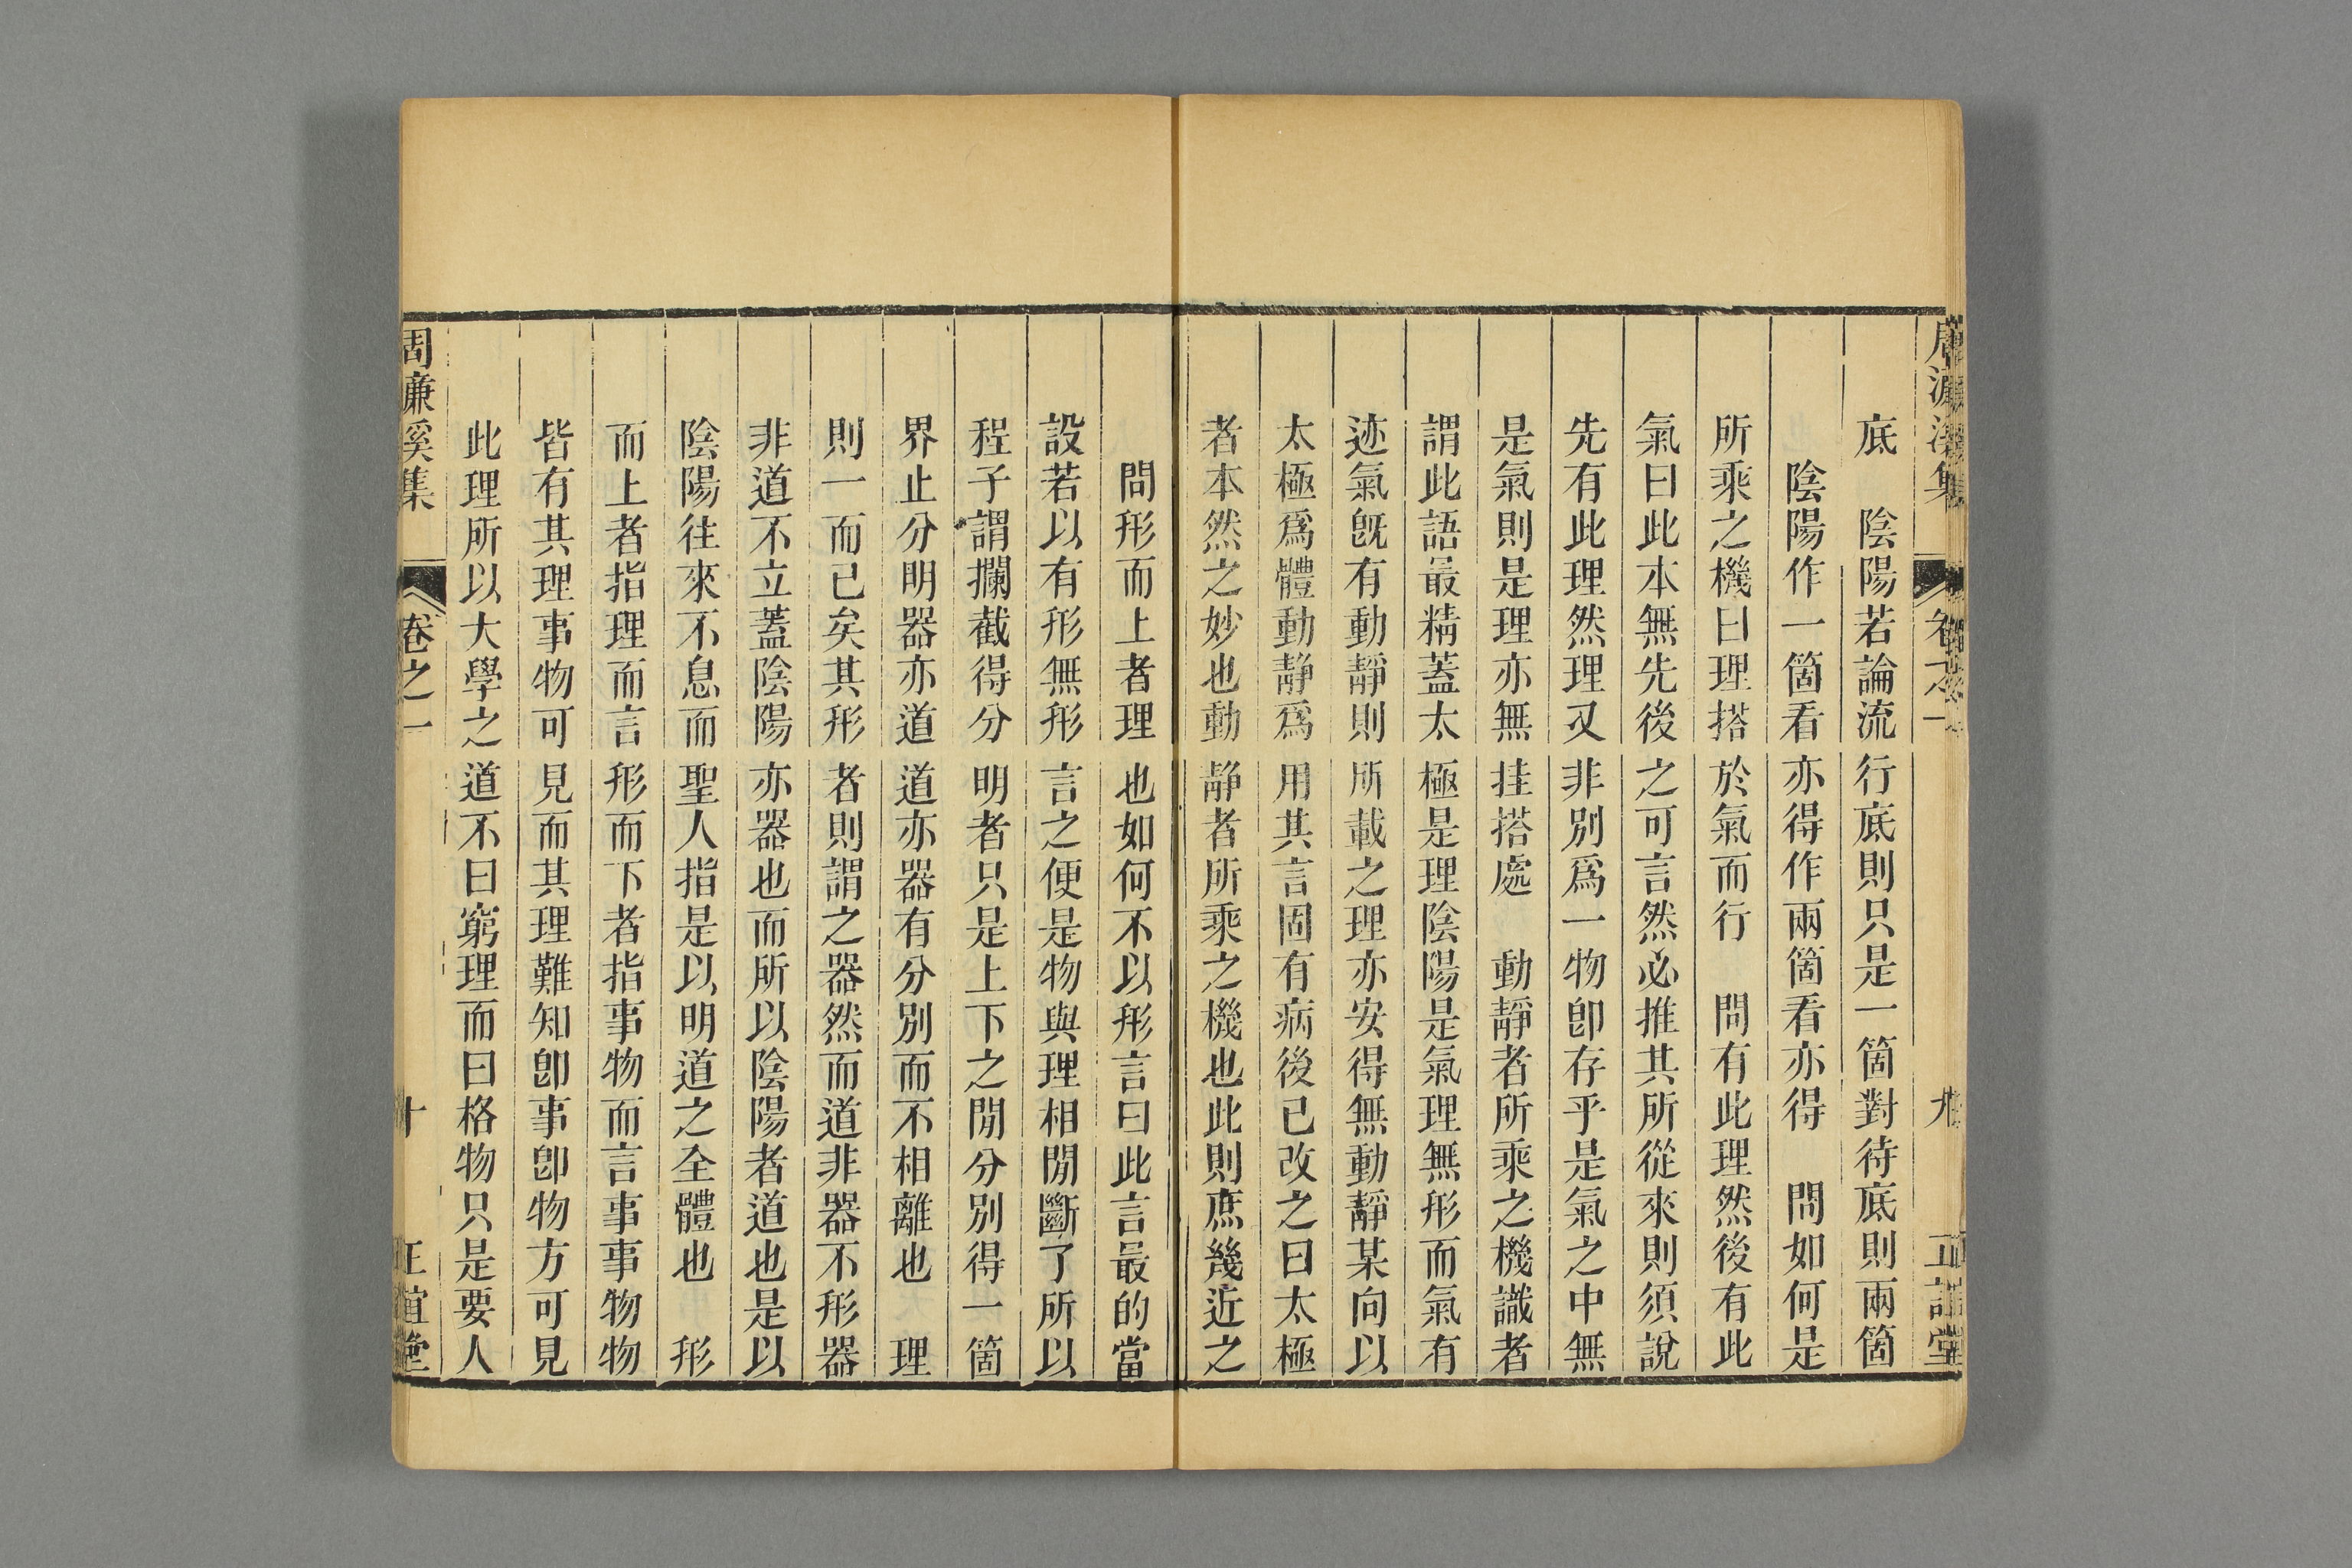 周濂溪集 卷之一 九 正誼堂
底 陰陽若論流行底則只是一箇對待底則兩箇
陰陽作一箇看亦得作兩箇看亦得 問如何是
所乘之機曰理搭於氣而行 問有此理然後有此
氣曰此本無先後之可言然必推其所從來則須說
先有此理然理又非別爲一物卽存乎是氣之中無
是氣則是理亦無挂搭處 動靜者所乘之機識者
謂此語最精蓋太極是理陰陽是氣理無形而氣有
迹氣旣有動靜則所載之理亦安得無動靜某向以
太極爲體動靜爲用其言固有病後已改之曰太極
者本然之妙也動靜者所乘之機也此則庶幾近之
問形而上者理也如何不以形言曰此言最的當
設若以有形無形言之便是物與理相閒斷了所以
程子謂攔截得分明者只是上下之閒分別得一箇
界止分明器亦道道亦器有分別而不相離也 理
則一而已矣其形者則謂之器然而道非器不形器
非道不立蓋陰陽亦器也而所以陰陽者道也是以
陰陽往來不息而聖人指是以明道之全體也 形
而上者指理而言形而下者指事物而言事事物物
皆有其理事物可見而其理難知卽事卽物方可見
此理所以大學之道不曰窮理而曰格物只是要人
周濂溪集 卷之一 十 正誼堂